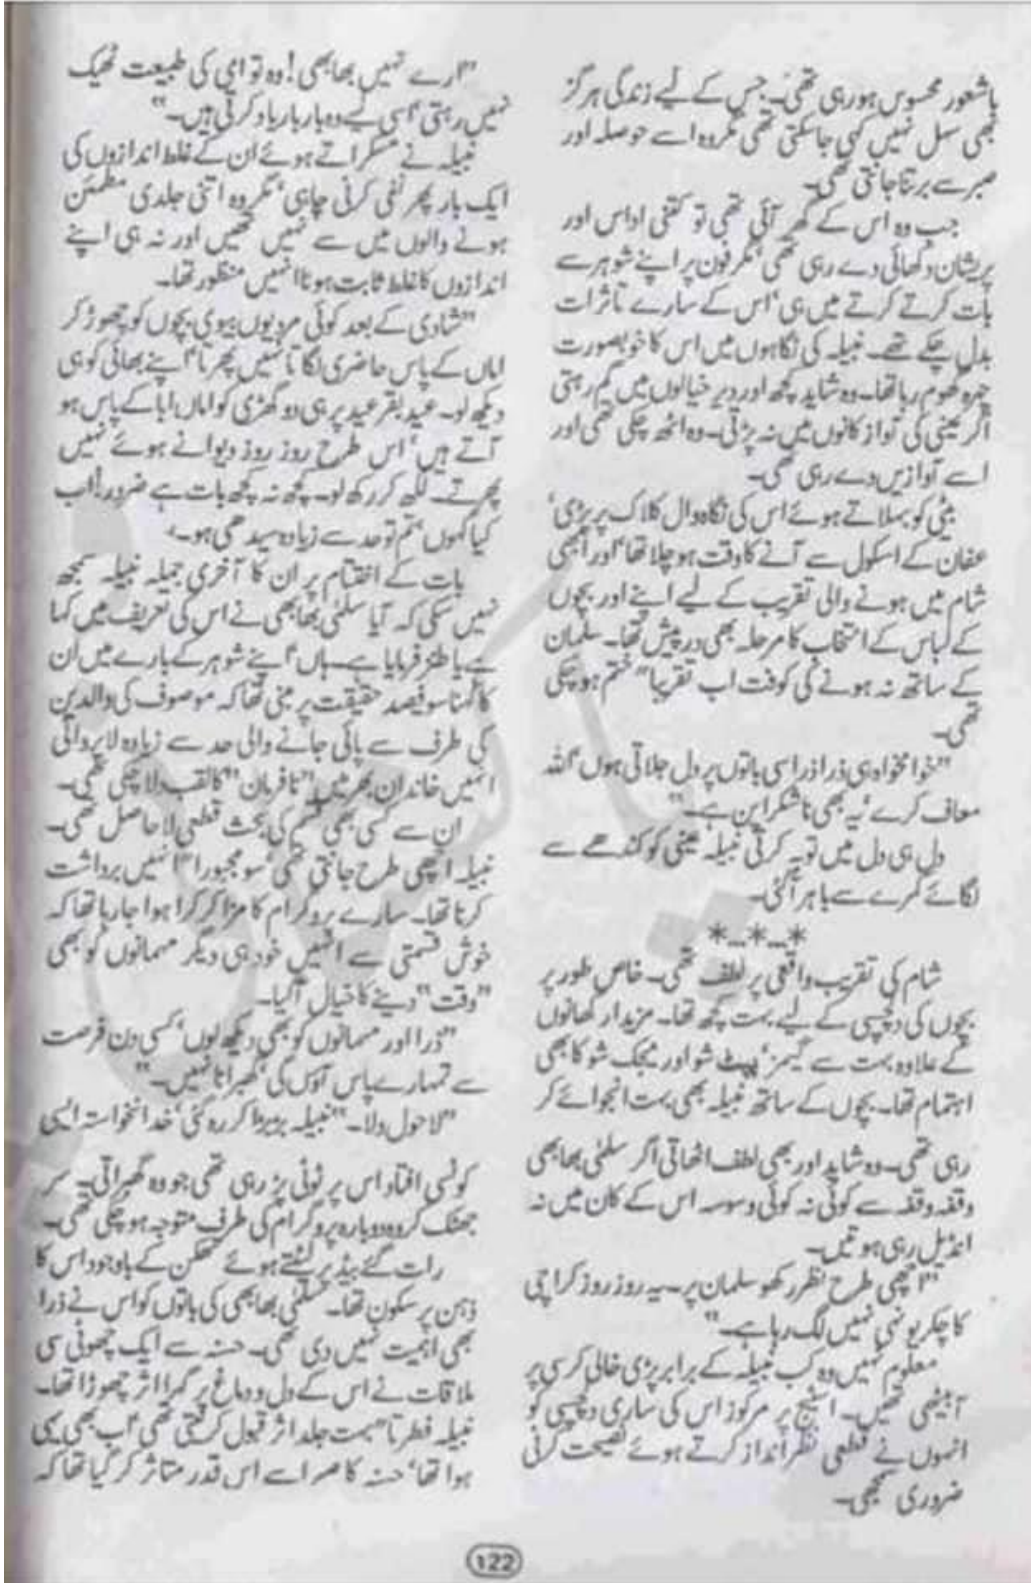 باشعور محسوس ہورہی تھی۔ جس کے لیے زندگی ہرگز
بھی سہل نہیں کہی جاسکتی تھی مگر وہ اسے حوصلہ اور
صبر سے برتنا جانتی تھی۔
جب وہ اس کے گھر آئی تھی تو کتنی اداس اور
پریشان دکھائی دے رہی تھی‘ مگر فون پر اپنے شوہر سے
بات کرتے کرتے میں ہی‘ اس کے سارے تاثرات
بدل چکے تھے۔ نبیلہ کی نگاہوں میں اس کا خوبصورت
چہرہ گھوم رہا تھا۔ وہ شاید کچھ اور دیر خیالوں میں گم رہتی
اگر عینی کی آواز کانوں میں نہ پڑتی۔ وہ اٹھ چکی تھی اور
اسے آوازیں دے رہی تھی۔
بیٹی کو بہلاتے ہوئے اس کی نگاہ وال کلاک پر پڑی‘
عفان کے اسکول سے آنے کا وقت ہوچلا تھا‘ اور ابھی
شام میں ہونے والی تقریب کے لیے اپنے اور بچوں
کے لباس کے انتخاب کا مرحلہ بھی درپیش تھا۔ سلمان
کے ساتھ نہ ہونے کی کوفت اب تقریباً ختم ہوچکی
تھی۔
”خوامخواہ ہی ذرا ذرا سی باتوں پر دل جلاتی ہوں‘ اللہ
معاف کرے‘ یہ بھی ناشکراپن ہے۔“
دل ہی دل میں توبہ کرتی نبیلہ عینی کو کندھے سے
لگائے کمرے سے باہر آگئی۔
*_*_*
شام کی تقریب واقعی پر لطف تھی۔ خاص طور پر
بچوں کی دلچسپی کے لیے بہت کچھ تھا۔ مزیدار کھانوں
کے علاوہ بہت سے گیمز‘ پپٹ شو اور میجک شو کا بھی
اہتمام تھا۔ بچوں کے ساتھ نبیلہ بھی بہت انجوائے کر
رہی تھی۔ وہ شاید اور بھی لطف اٹھاتی اگر سلمٰی بھابھی
وقفہ وقفہ سے کوئی نہ کوئی وسوسہ اس کے کان میں نہ
انڈیل رہی ہوتیں۔
”اچھی طرح نظر رکھو سلمان پر۔ یہ روز روز کراچی
کا چکر یونہی نہیں لگ رہا ہے۔“
معلوم نہیں وہ کب نبیلہ کے برابر پڑی خالی کرسی پر
آبیٹھی تھیں۔ اسٹیج پر مرکوز اس کی ساری دلچسپی کو
انہوں نے قطعی نظرانداز کرتے ہوئے نصیحت کرنی
ضروری سمجھی۔
”ارے نہیں بھابھی! وہ تو امی کی طبیعت ٹھیک
نہیں رہتی‘ اسی لیے وہ بار بار یاد کرتی ہیں۔“
نبیلہ نے مسکراتے ہوئے ان کے غلط اندازوں کی
ایک بار پھر نفی کرنی چاہی‘ مگر وہ اتنی جلدی مطمئن
ہونے والوں میں سے نہیں تھیں اور نہ ہی اپنے
اندازوں کا غلط ثابت ہونا انہیں منظور تھا۔
”شادی کے بعد کوئی مرد یوں بیوی بچوں کو چھوڑ کر
اماں کے پاس حاضری لگاتا نہیں پھرتا‘ اپنے بھائی کو ہی
دیکھ لو۔ عید بقر عید پر ہی دو گھڑی کو اماں ابا کے پاس ہو
آتے ہیں‘ اس طرح روز روز دیوانے ہوئے نہیں
پھرتے۔ لکھ کر رکھ لو۔ کچھ نہ کچھ بات ہے ضرور! اب
کیا کہوں‘ تم تو حد سے زیادہ سیدھی ہو۔“
بات کے اختتام پر ان کا آخری جملہ نبیلہ سمجھ
نہیں سکی کہ آیا سلمٰی بھابھی نے اس کی تعریف میں کہا
ہے یا طنز فرمایا ہے۔ ہاں‘ اپنے شوہر کے بارے میں ان
کا کہنا سو فیصد حقیقت پر مبنی تھا کہ موصوف کی والدین
کی طرف سے پائی جانے والی حد سے زیادہ لاپروائی
انہیں خاندان بھر میں ”نافرمان“ کا لقب دلا چکی تھی۔
ان سے کسی بھی قسم کی بحث قطعی لاحاصل تھی۔
نبیلہ اچھی طرح جانتی تھی‘ سو مجبوراً انہیں برداشت
کرنا تھا۔ سارے پروگرام کا مزا کرکرا ہوا جارہا تھا کہ
خوش قسمتی سے انہیں خود ہی دیگر مہمانوں کو بھی
”وقت“ دینے کا خیال آگیا۔
”ذرا اور مہمانوں کو بھی دیکھ لوں‘ کسی دن فرصت
سے تمہارے پاس آؤں گی‘ گھبرانا نہیں۔“
”لاحول ولا۔“ نبیلہ بڑبڑا کر رہ گئی‘ خدانخواستہ ایسی
کونسی افتاد اس پر ٹوٹی پڑ رہی تھی جو وہ گھبراتی۔ سر
جھٹک کر وہ دوبارہ پروگرام کی طرف متوجہ ہوچکی تھی۔
رات گئے بیڈ پر لیٹتے ہوئے تھکن کے باوجود اس کا
ذہن پرسکون تھا۔ سلمٰی بھابھی کی باتوں کو اس نے ذرا
بھی اہمیت نہیں دی تھی۔ حسنہ سے ایک چھوٹی سی
ملاقات نے اس کے دل و دماغ پر گہرا اثر چھوڑا تھا۔
نبیلہ فطرتاً بہت جلد اثر قبول کرلیتی تھی‘ اب بھی یہی
ہوا تھا‘ حسنہ کا صبر اسے اس قدر متاثر کر گیا تھا کہ
122